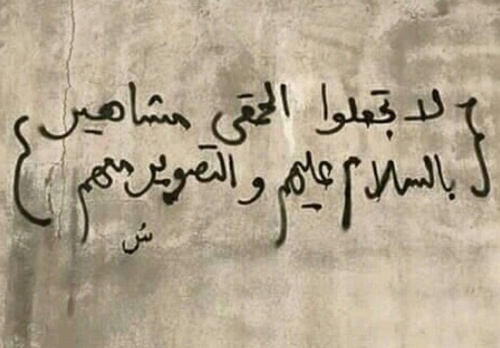 { لا تجعلوا الحمقى مشاهير
بالسلام عليهم و التصوير معهم }
ش